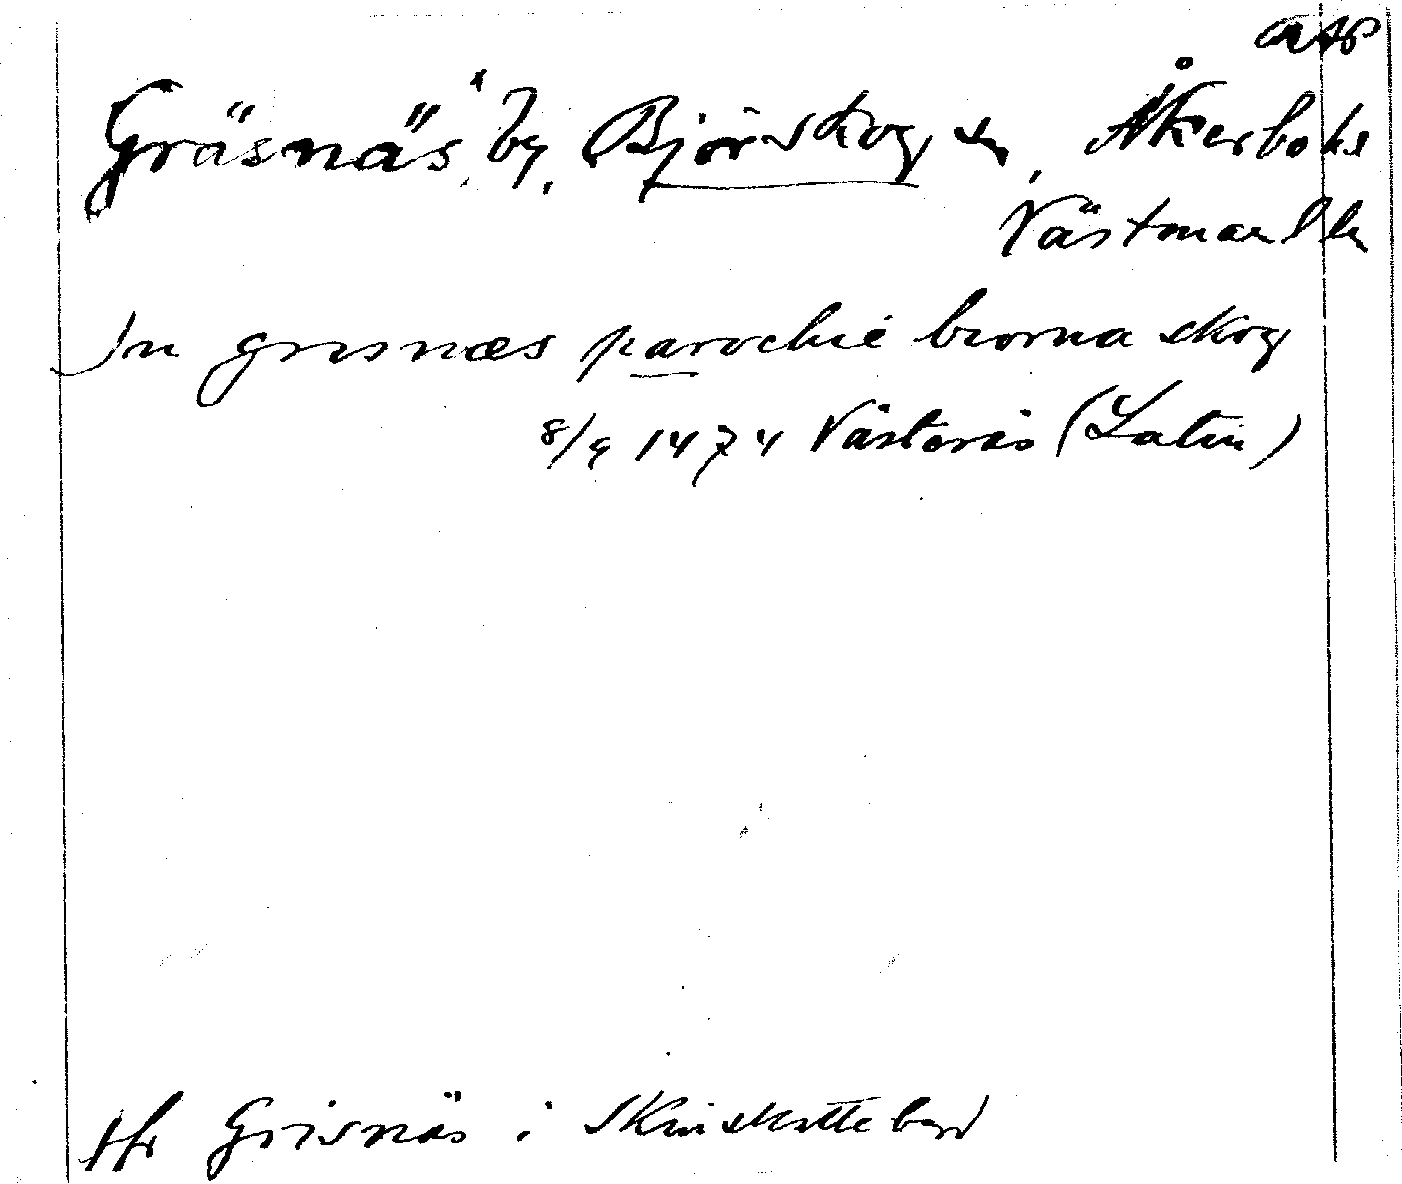 Gräsnäs, by, Björskogs sn, Åkerbo hd
Västmanl. län
In grisnæs parochie biorna skog
8/9 1474 Västerås (Latin)
Jfr Grisnäs i Skinskatteberg